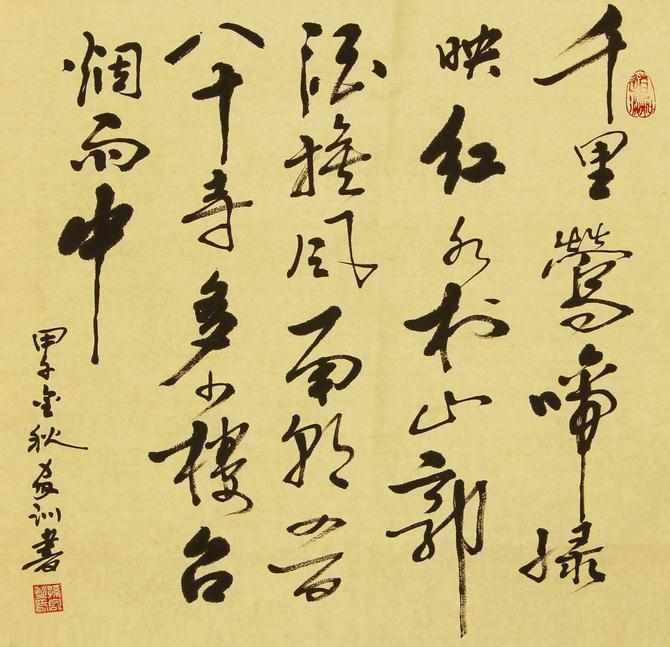 千里鶯啼绿
映红水村山郭
酒旗风南朝四百
八十寺多少樓台
烟雨中
甲子金秋训書